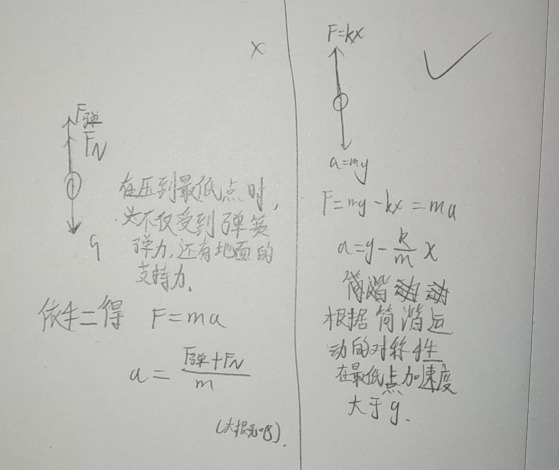 x
F弹
FN
g
在压到最低点时,
头不仅受到弹簧
弹力,还有地面的
支持力。
依牛二得 F=ma
a = F弹+FN / m
F=kx
a=mg
F=mg-kx=ma
a=g-k/m x
简谐
根据简谐运
动的对称性
在最低点加速度
大于g.